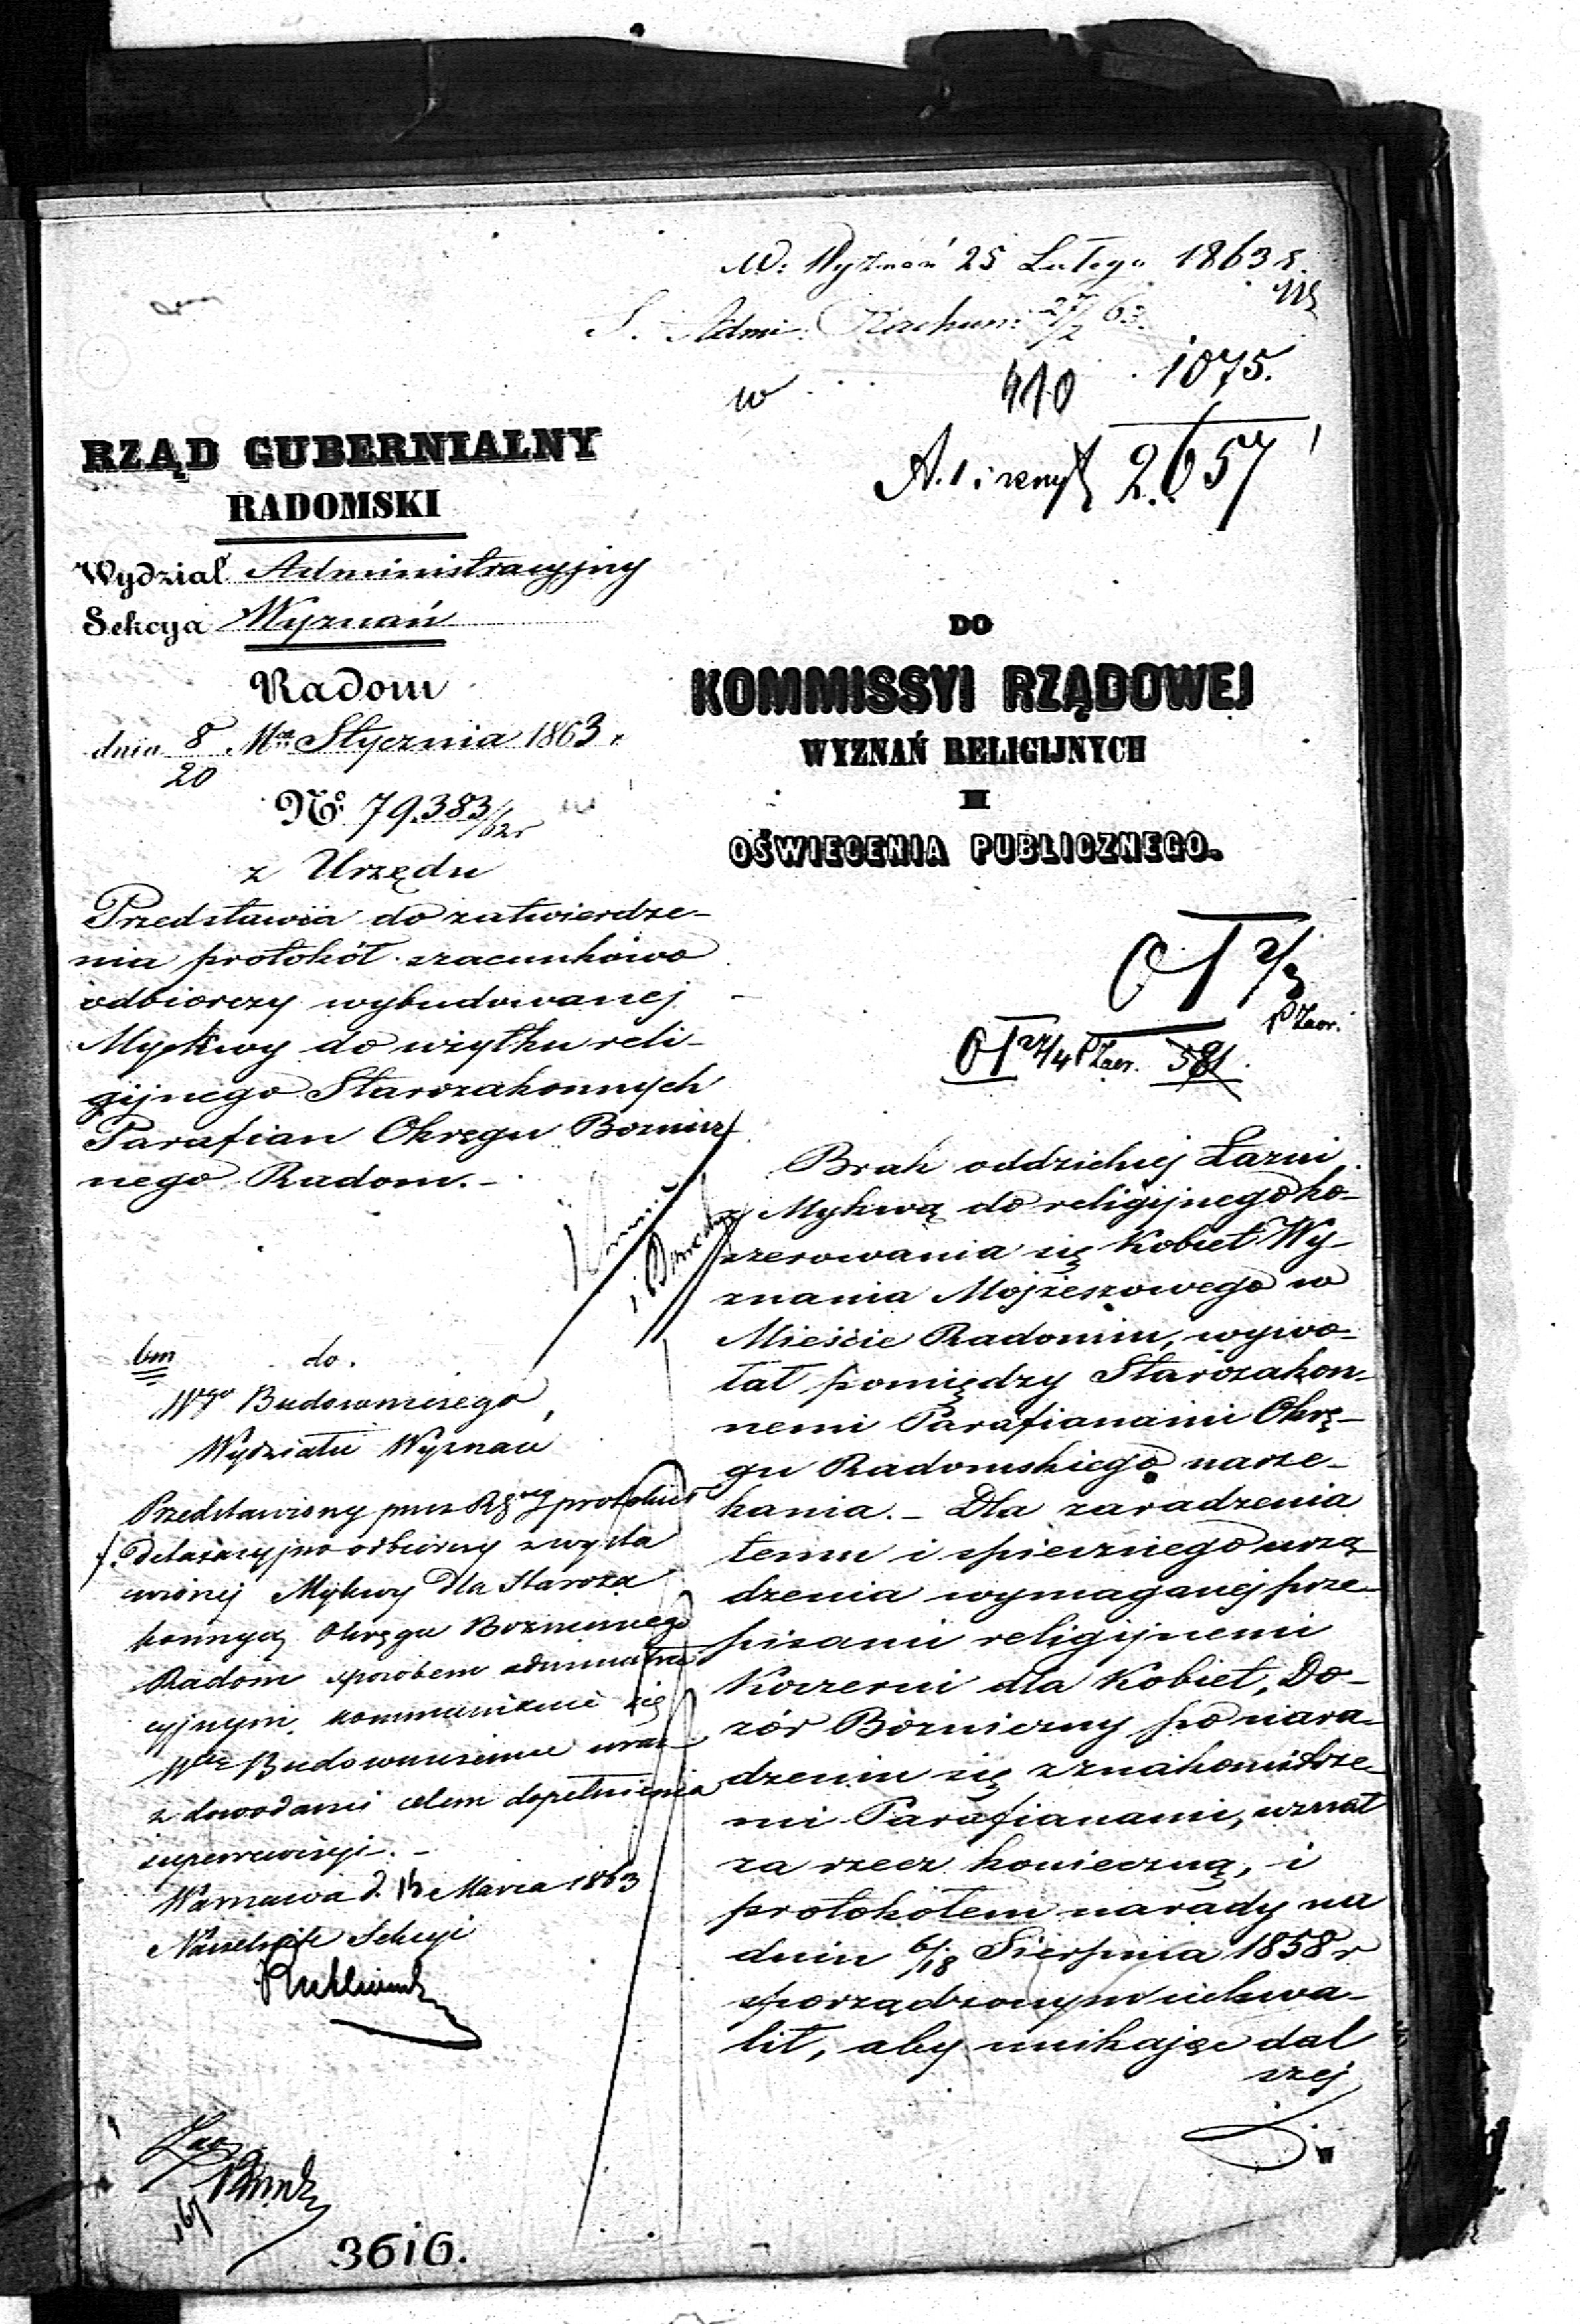 W. Wyznań 25 Lutego 1863 r.
S. Admi: Rachun: 27/2 63.
w 410 1075.
2657
RZĄD GUBERNIALNY
RADOMSKI
Wydział Administracyjny
Sekcya Wyznań
Radom
dnia 8/20 Mca Stycznia 1863 r.
No. 79.383/62 r
z Urzędu
Przedstawia do zatwierdze-
nia protokół szacunkowo
odbiorczy wybudowanej
Mykwy do użytku reli-
gijnego Starozakonnych
Parafian Okręgu Bożnicz-
nego Radom.-
DO
KOMMISSYI RZĄDOWEJ
WYZNAŃ RELIGIJNYCH
I
OŚWIECENIA PUBLICZNEGO.
581
Brak oddzielnej Łazni
z Mykwą do religijnego ko-
szerowania się Kobiet Wy-
znania Mojżeszowego w
Mieście Radomiu, wywo-
łał pomiędzy Starozakon-
nemi Parafianami Okrę-
gu Radomskiego narze-
kania.- Dla zaradzenia
temu i spiesznego urzą-
dzenia wymaganej prze-
pisami religijnemi
Koszerni dla Kobiet, Do-
zór Bożniczny po nara-
dzeniu się z znakomitsze-
mi Parafianami, uznał
za rzecz konieczną, i
protokołem narady na
dniu 6/18 Sierpnia 1858 r
sporządzonym uchwa-
lił, aby unikając dal
szej
do.
Wgo Budowniczego
Wydziału Wyznań
Przedstawiony przez protokuł
odbiorczy z wysta
wionej Mykwy dla Staroza
konnych Okręgu Bożnicznego
Radom sposobem administra
cyjnym, kommunikuie się
Budowniczemu wraz
z dowodami celem dopełnienia
superrewizyi.-
Warszawa d. Marca 1863
Naczelnik Sekcyi
3616.